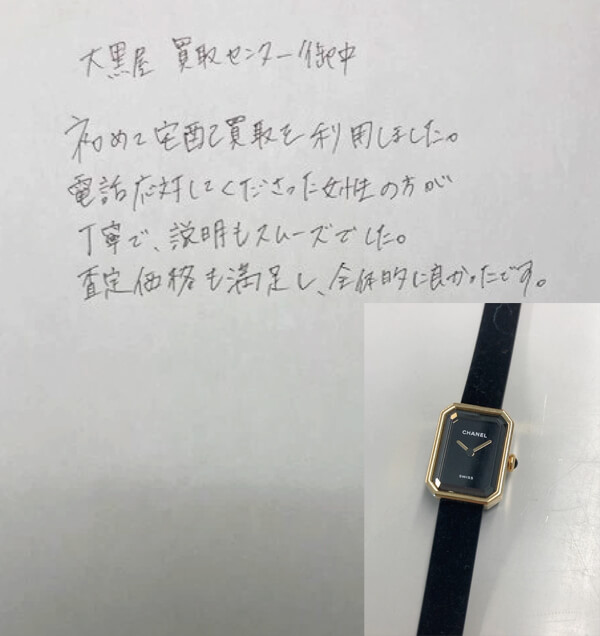 大黒屋 買取センター御中
初めて宅配買取を利用しました。
電話応対してくださった女性の方が
丁寧で、説明もスムーズでした。
査定価格も満足し、全体的に良かったです。
CHANEL
SWISS